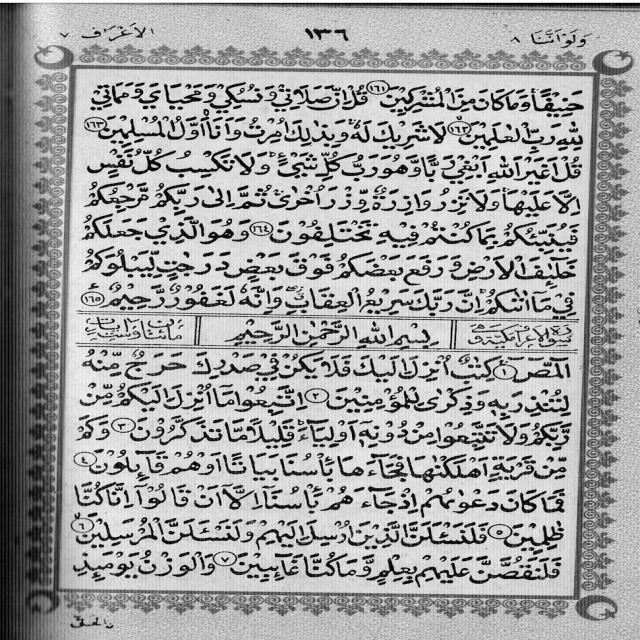 ولو اننا ٨
١٣٦
الاعراف ٧
حَنِيْفًا وَمَا كَانَ مِنَ الْمُشْرِكِيْنَ ١٦١ قُلْ اِنَّ صَلَاتِيْ وَنُسُكِيْ وَمَحْيَايَ وَمَمَاتِيْ
لِلّٰهِ رَبِّ الْعٰلَمِيْنَ ١٦٢ لَا شَرِيْكَ لَهٗ وَبِذٰلِكَ اُمِرْتُ وَاَنَا۠ اَوَّلُ الْمُسْلِمِيْنَ ١٦٣
قُلْ اَغَيْرَ اللّٰهِ اَبْغِيْ رَبًّا وَّهُوَ رَبُّ كُلِّ شَيْءٍ وَلَا تَكْسِبُ كُلُّ نَفْسٍ
اِلَّا عَلَيْهَا وَلَا تَزِرُ وَازِرَةٌ وِّزْرَ اُخْرٰى ثُمَّ اِلٰى رَبِّكُمْ مَّرْجِعُكُمْ
فَيُنَبِّئُكُمْ بِمَا كُنْتُمْ فِيْهِ تَخْتَلِفُوْنَ ١٦٤ وَهُوَ الَّذِيْ جَعَلَكُمْ
خَلٰٓئِفَ الْاَرْضِ وَرَفَعَ بَعْضَكُمْ فَوْقَ بَعْضٍ دَرَجٰتٍ لِّيَبْلُوَكُمْ
فِيْ مَآ اٰتٰىكُمْ اِنَّ رَبَّكَ سَرِيْعُ الْعِقَابِ وَاِنَّهٗ لَغَفُوْرٌ رَّحِيْمٌ ١٦٥
بِسْمِ اللّٰهِ الرَّحْمٰنِ الرَّحِيْمِ
الٓمّٓصٓ ١ كِتٰبٌ اُنْزِلَ اِلَيْكَ فَلَا يَكُنْ فِيْ صَدْرِكَ حَرَجٌ مِّنْهُ
لِتُنْذِرَ بِهٖ وَذِكْرٰى لِلْمُؤْمِنِيْنَ ٢ اِتَّبِعُوْا مَآ اُنْزِلَ اِلَيْكُمْ مِّنْ
رَّبِّكُمْ وَلَا تَتَّبِعُوْا مِنْ دُوْنِهٖٓ اَوْلِيَآءَ قَلِيْلًا مَّا تَذَكَّرُوْنَ ٣ وَكَمْ
مِّنْ قَرْيَةٍ اَهْلَكْنٰهَا فَجَآءَهَا بَأْسُنَا بَيَاتًا اَوْ هُمْ قَآئِلُوْنَ ٤
فَمَا كَانَ دَعْوٰىهُمْ اِذْ جَآءَهُمْ بَأْسُنَآ اِلَّآ اَنْ قَالُوْٓا اِنَّا كُنَّا
ظٰلِمِيْنَ ٥ فَلَنَسْئَلَنَّ الَّذِيْنَ اُرْسِلَ اِلَيْهِمْ وَلَنَسْئَلَنَّ الْمُرْسَلِيْنَ ٦
فَلَنَقُصَّنَّ عَلَيْهِمْ بِعِلْمٍ وَّمَا كُنَّا غَآئِبِيْنَ ٧ وَالْوَزْنُ يَوْمَئِذٍ